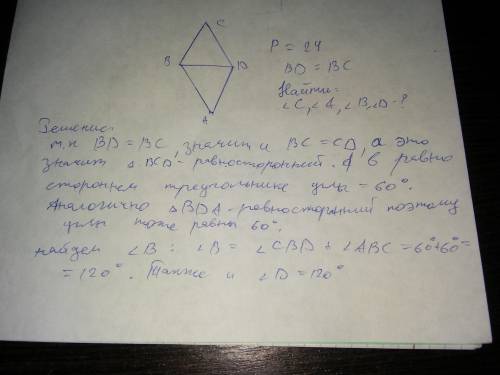 C
B
D
A
P = 24
BD = BC
Найти:
∠C, ∠A, ∠B, ∠D - ?
Решение:
т.к BD = BC, значит и BC = CD, а это
значит △BCD - равносторонний. А в равно
стороннем треугольнике углы = 60°.
Аналогично △BDA - равносторонний поэтому
углы тоже равны 60°.
найдем ∠B: ∠B = ∠CBD + ∠ABC = 60°+60°=
= 120°. Также и ∠D = 120°